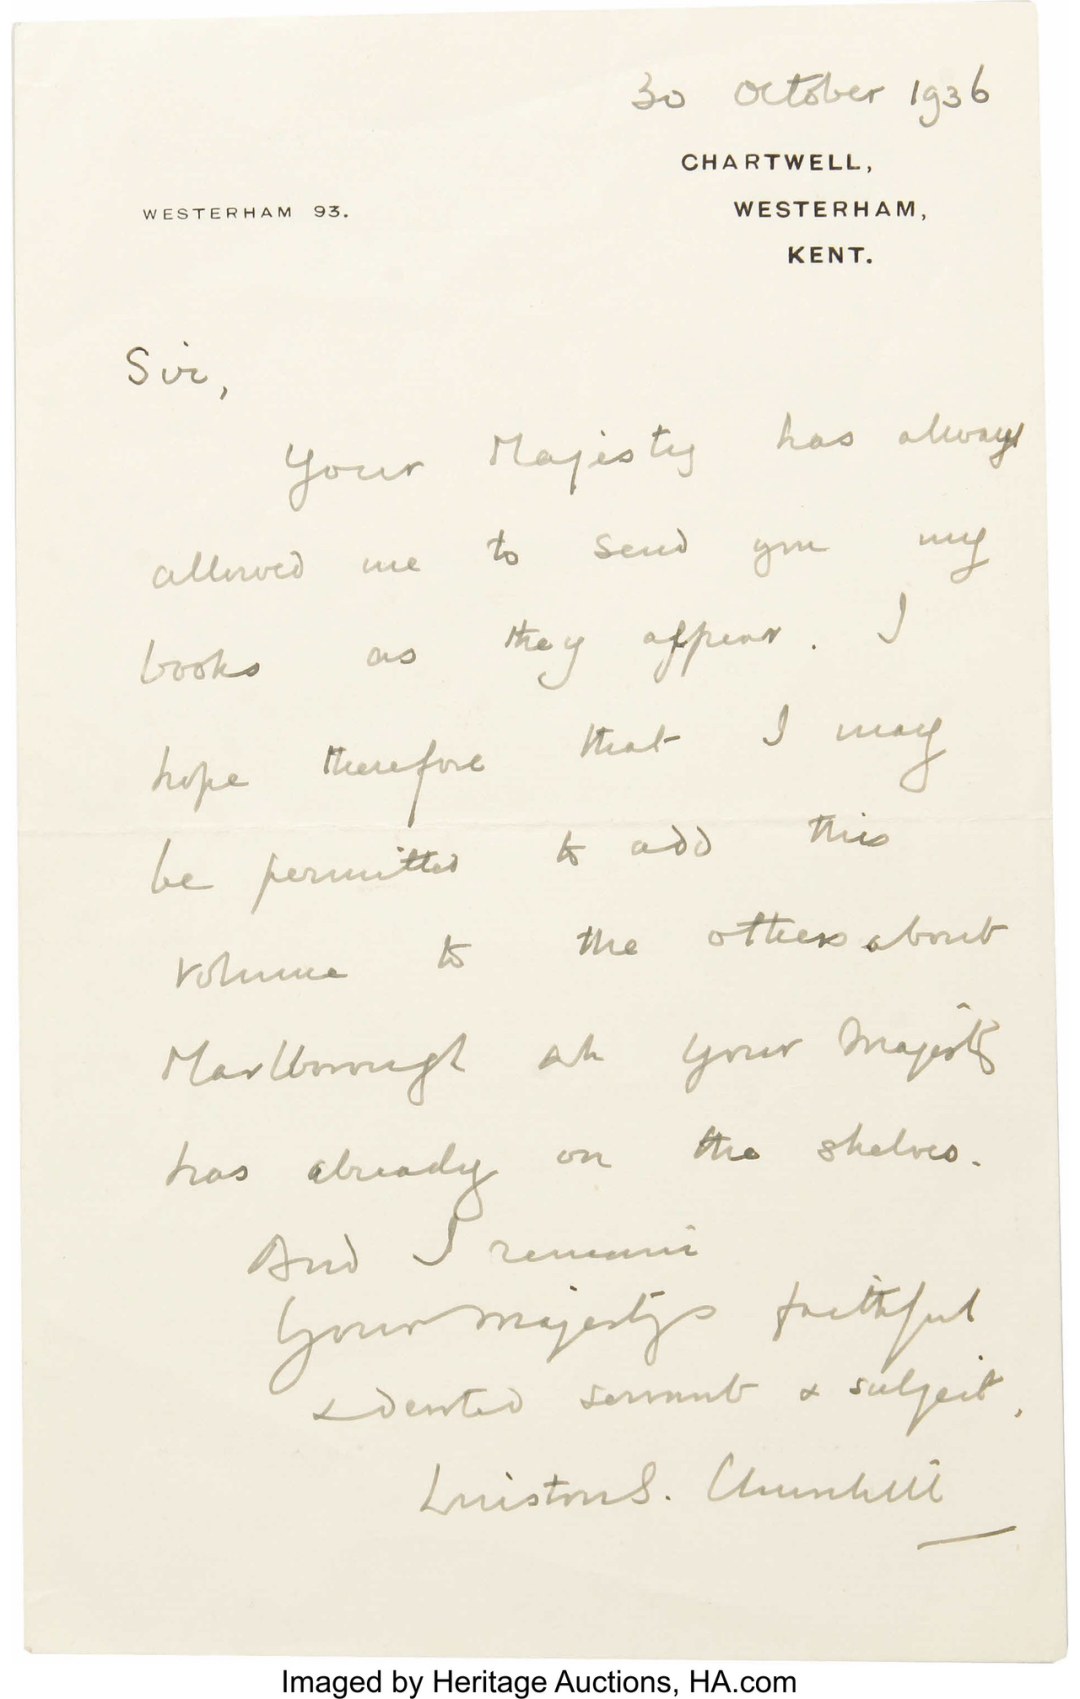 30 October 1936
CHARTWELL,
WESTERHAM 93.
WESTERHAM,
KENT.
Sir,
Your Majesty has always
allowed me to send you my
books as they appear. I
hope therefore that I may
be permitted to add this
volume to the others about
Marlborough wh your Majesty
has already on the shelves.
And I remain
Your Majesty's faithful
& devoted servant & subject,
Winston S. Churchill
Imaged by Heritage Auctions, HA.com